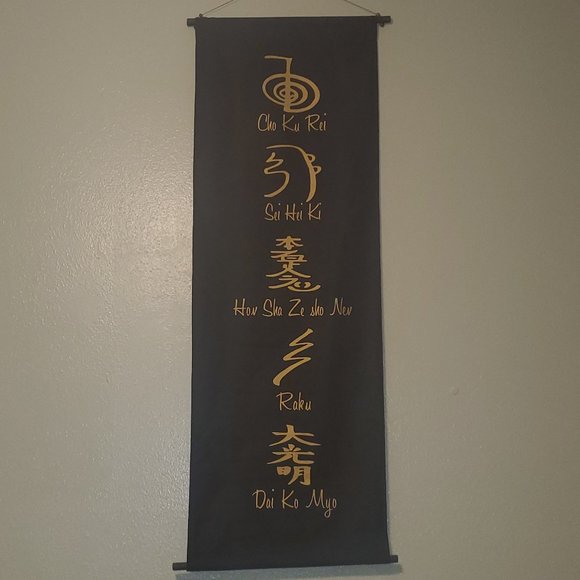 Cho Ku Rei
Sei Hei Ki
本者是正念
Hon Sha Ze sho Nen
Raku
大光明
Dai Ko Myo